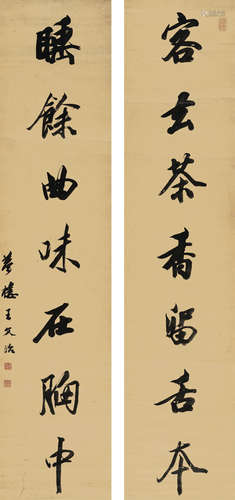 客去茶香留舌本
睡餘曲味在胸中
夢樓王文治